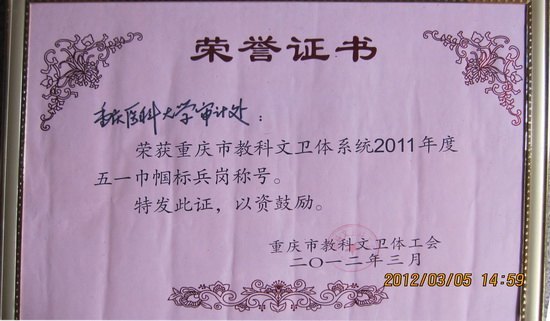 荣誉证书
重庆医科大学审计处：
荣获重庆市教科文卫体系统2011年度
五一巾帼标兵岗称号。
特发此证，以资鼓励。
重庆市教科文卫体工会
二〇一二年三月
2012/03/05 14:59